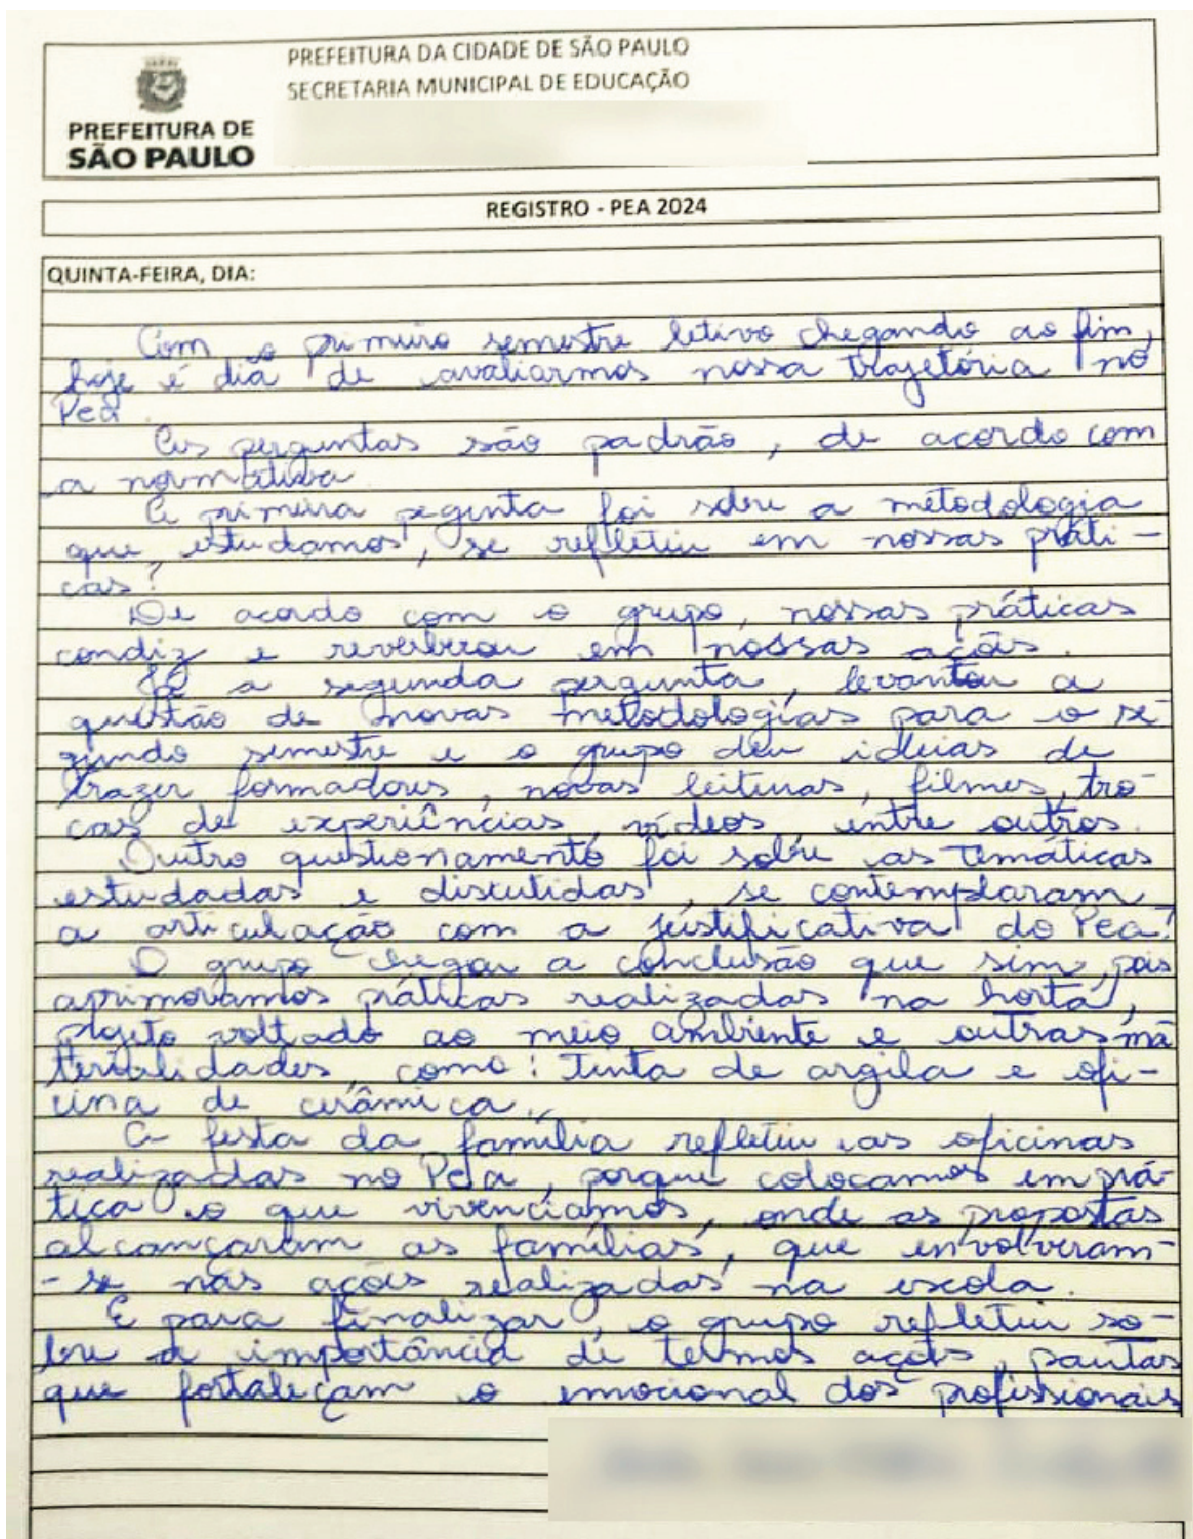 PREFEITURA DA CIDADE DE SÃO PAULO
SECRETARIA MUNICIPAL DE EDUCAÇÃO
PREFEITURA DE
SÃO PAULO
REGISTRO - PEA 2024
QUINTA-FEIRA, DIA:
Com o primeiro semestre letivo chegando ao fim,
hoje é dia de avaliarmos nossa trajetória no
Pea.
As perguntas são padrão, de acordo com
a normativa.
A primeira peginta foi sobre a metodologia
que estudamos, se refletiu em nossas práti-
cas?
De acordo com o grupo, nossas práticas
condiz e reverberou em nossas ações.
Já a segunda pergunta, levantou a
questão de novas metodologias para o se-
gundo semestre e o grupo deu ideias de
trazer formadores, novas leituras, filmes, tro-
cas de experiências, vídeos, entre outros.
Outro questionamento foi sobre as temáticas
estudadas e discutidas, se contemplaram
a articulação com a justificativa do Pea?
O grupo chegou a conclusão que sim, pois
aprimoramos práticas realizadas na horta,
projeto voltado ao meio ambiente e outras ma-
terialidades, como: Tinta de argila e ofi-
cina de cerâmica.
A festa da família refletiu as oficinas
realizadas no Pea, porque colocamos em prá-
tica o que vivenciamos, onde as propostas
alcançaram as famílias, que envolveram-
-se nas ações realizadas na escola.
E para finalizar, o grupo refletiu so-
bre a importância de termos ações, pautas
que fortaleçam o emocional dos profissionais